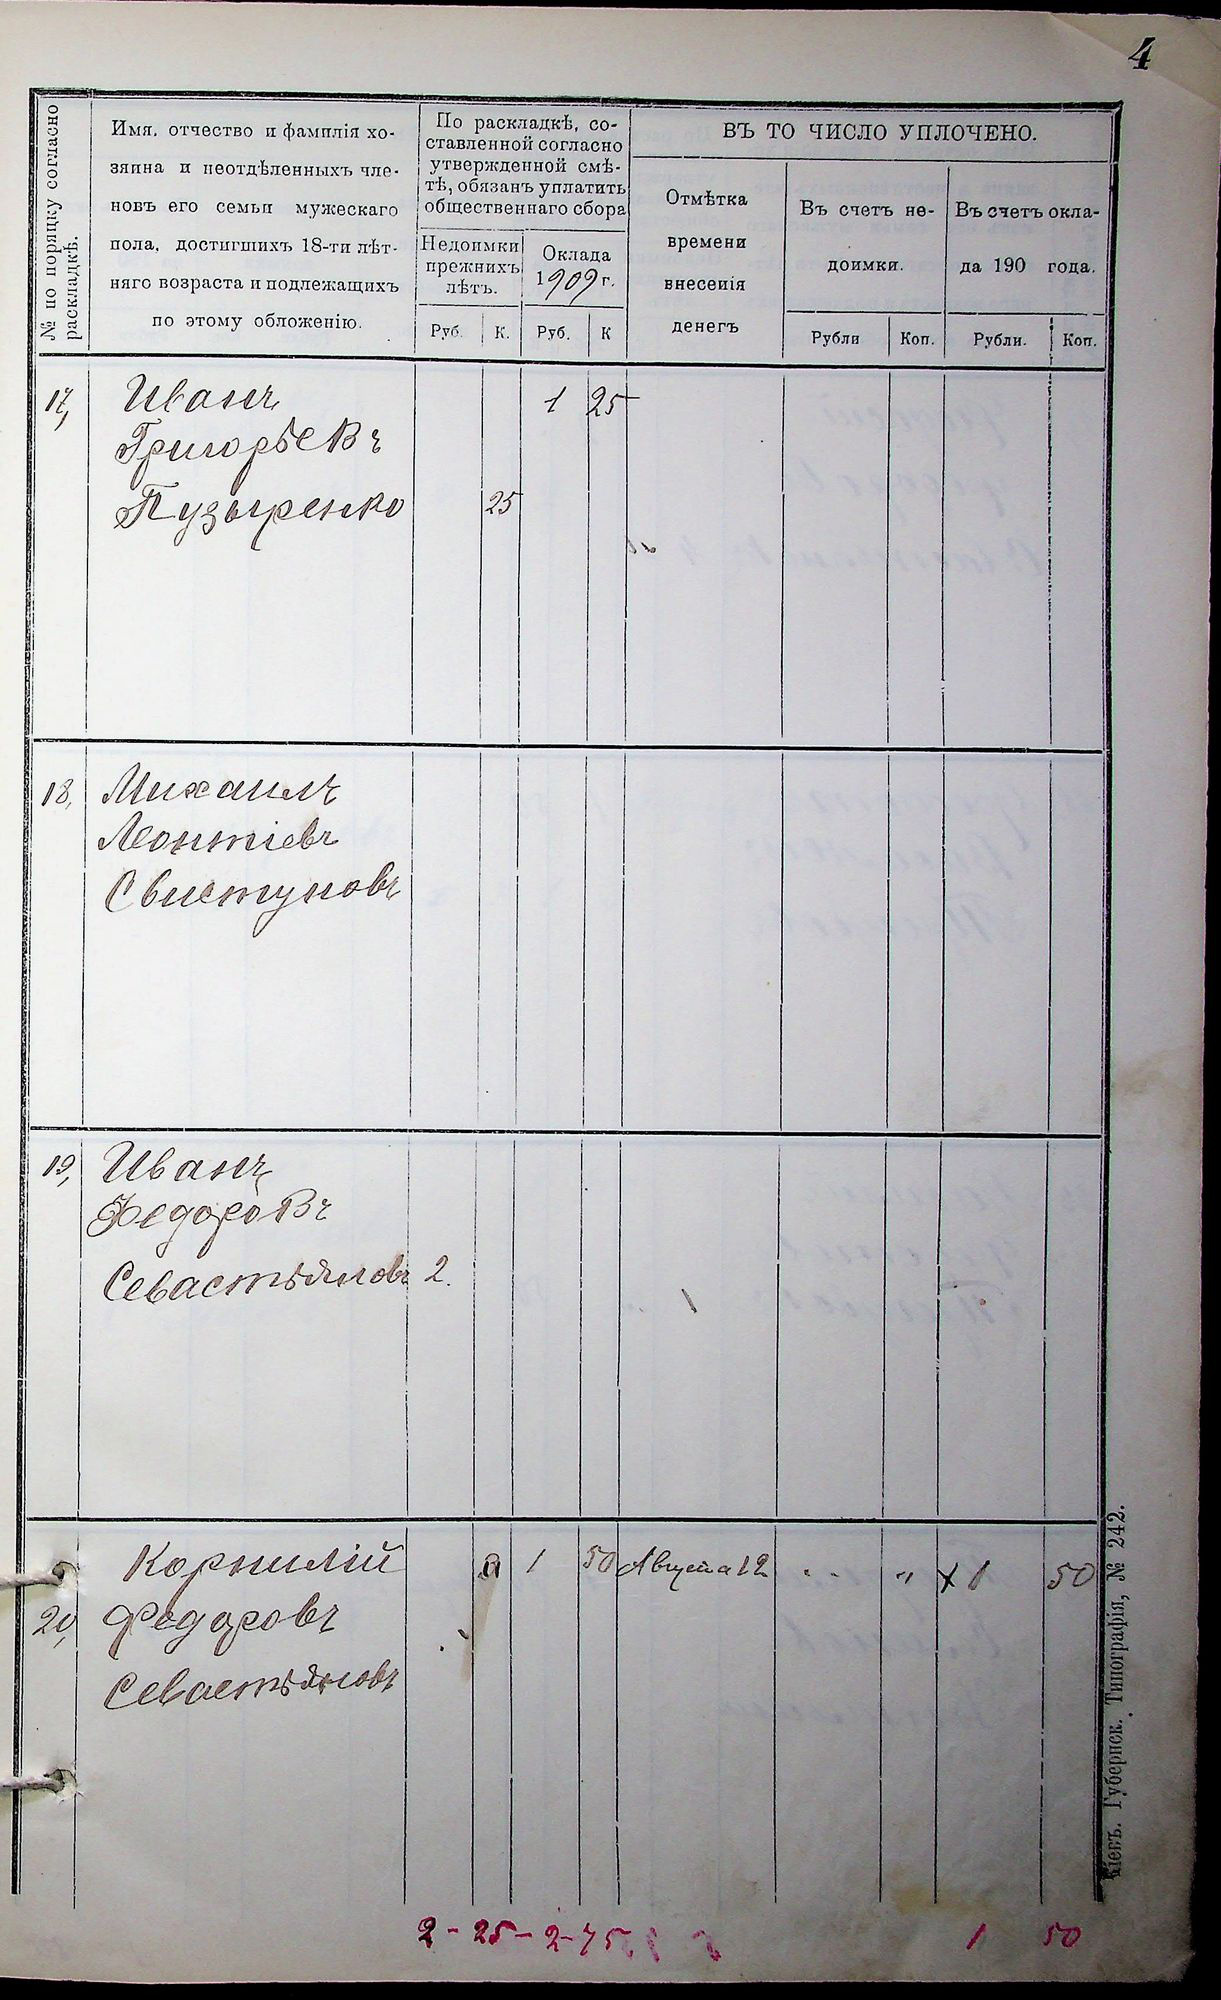 4
№ по порядку согласно
раскладкѣ.
Имя, отчество и фамилія хо-
зяина и неотдѣленныхъ чле-
новъ его семьи мужескаго
пола, достигшихъ 18-ти лѣт-
няго возраста и подлежащихъ
по этому обложенію.
По раскладкѣ, со-
ставленной согласно
утвержденной смѣ-
тѣ, обязанъ уплатить
общественнаго сбора
Недоимки
прежнихъ
лѣтъ.
Оклада
1909 г.
Руб. К. Руб. К
ВЪ ТО ЧИСЛО УПЛОЧЕНО.
Отмѣтка
времени
внесенія
денегъ
Въ счетъ не-
доимки.
Въ счетъ окла-
да 190 года.
Рубли Коп. Рубли. Коп.
17, Иванъ 1 25
Григорьевъ
Пузыренко 25
18, Михаилъ
Леонтіевъ
Свистуновъ
19, Иванъ
Федоровъ
Севастьяновъ 2.
Корнилій 1 50 Августа 12 „ „ 1 50
20, Федоровъ
Севастьяновъ
2 - 25 - 2 - 75 1 50
Кіевъ. Губернск. Типографія, № 242.